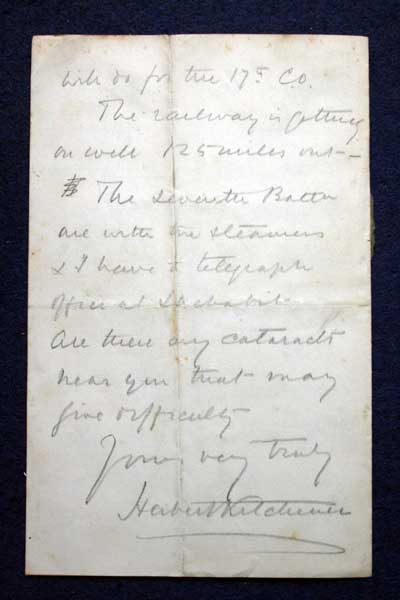 will do for the 17th Co.
The railway is getting
on well 125 miles out —
The seventh Battn
are with the steamers
& I have a telegraph
office at
Are there any cataracts
near you that may
give difficulty
Yours very truly
Herbert Kitchener